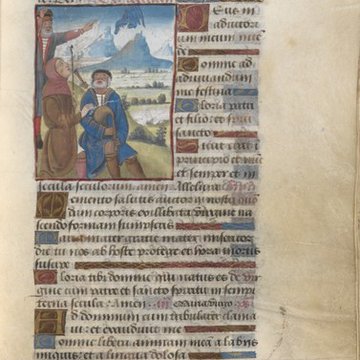 Deus in
adiutori
um meum inte
de
Domine ad
adiuvandum
me festina
Gloria patri
et filio et spiri
sancto
Sicut erat in
principio et nunc
et semper et in
secula seculorum amen Alleluya
Memento salutis auctor
dum corporis
scendo formam sumpseris
Maria mater gratie mater misericor
die tu nos ab hoste protege et hora mortis
suscipe
Gloria tibi domine qui natus es de vir
gine cum patre et sancto spiritu in sempi
terna secula Amen
Ad dominum cum tribularer clama
vi et exaudivit me
Domine libera animam meam a labiis
iniquis et a lingua dolosa